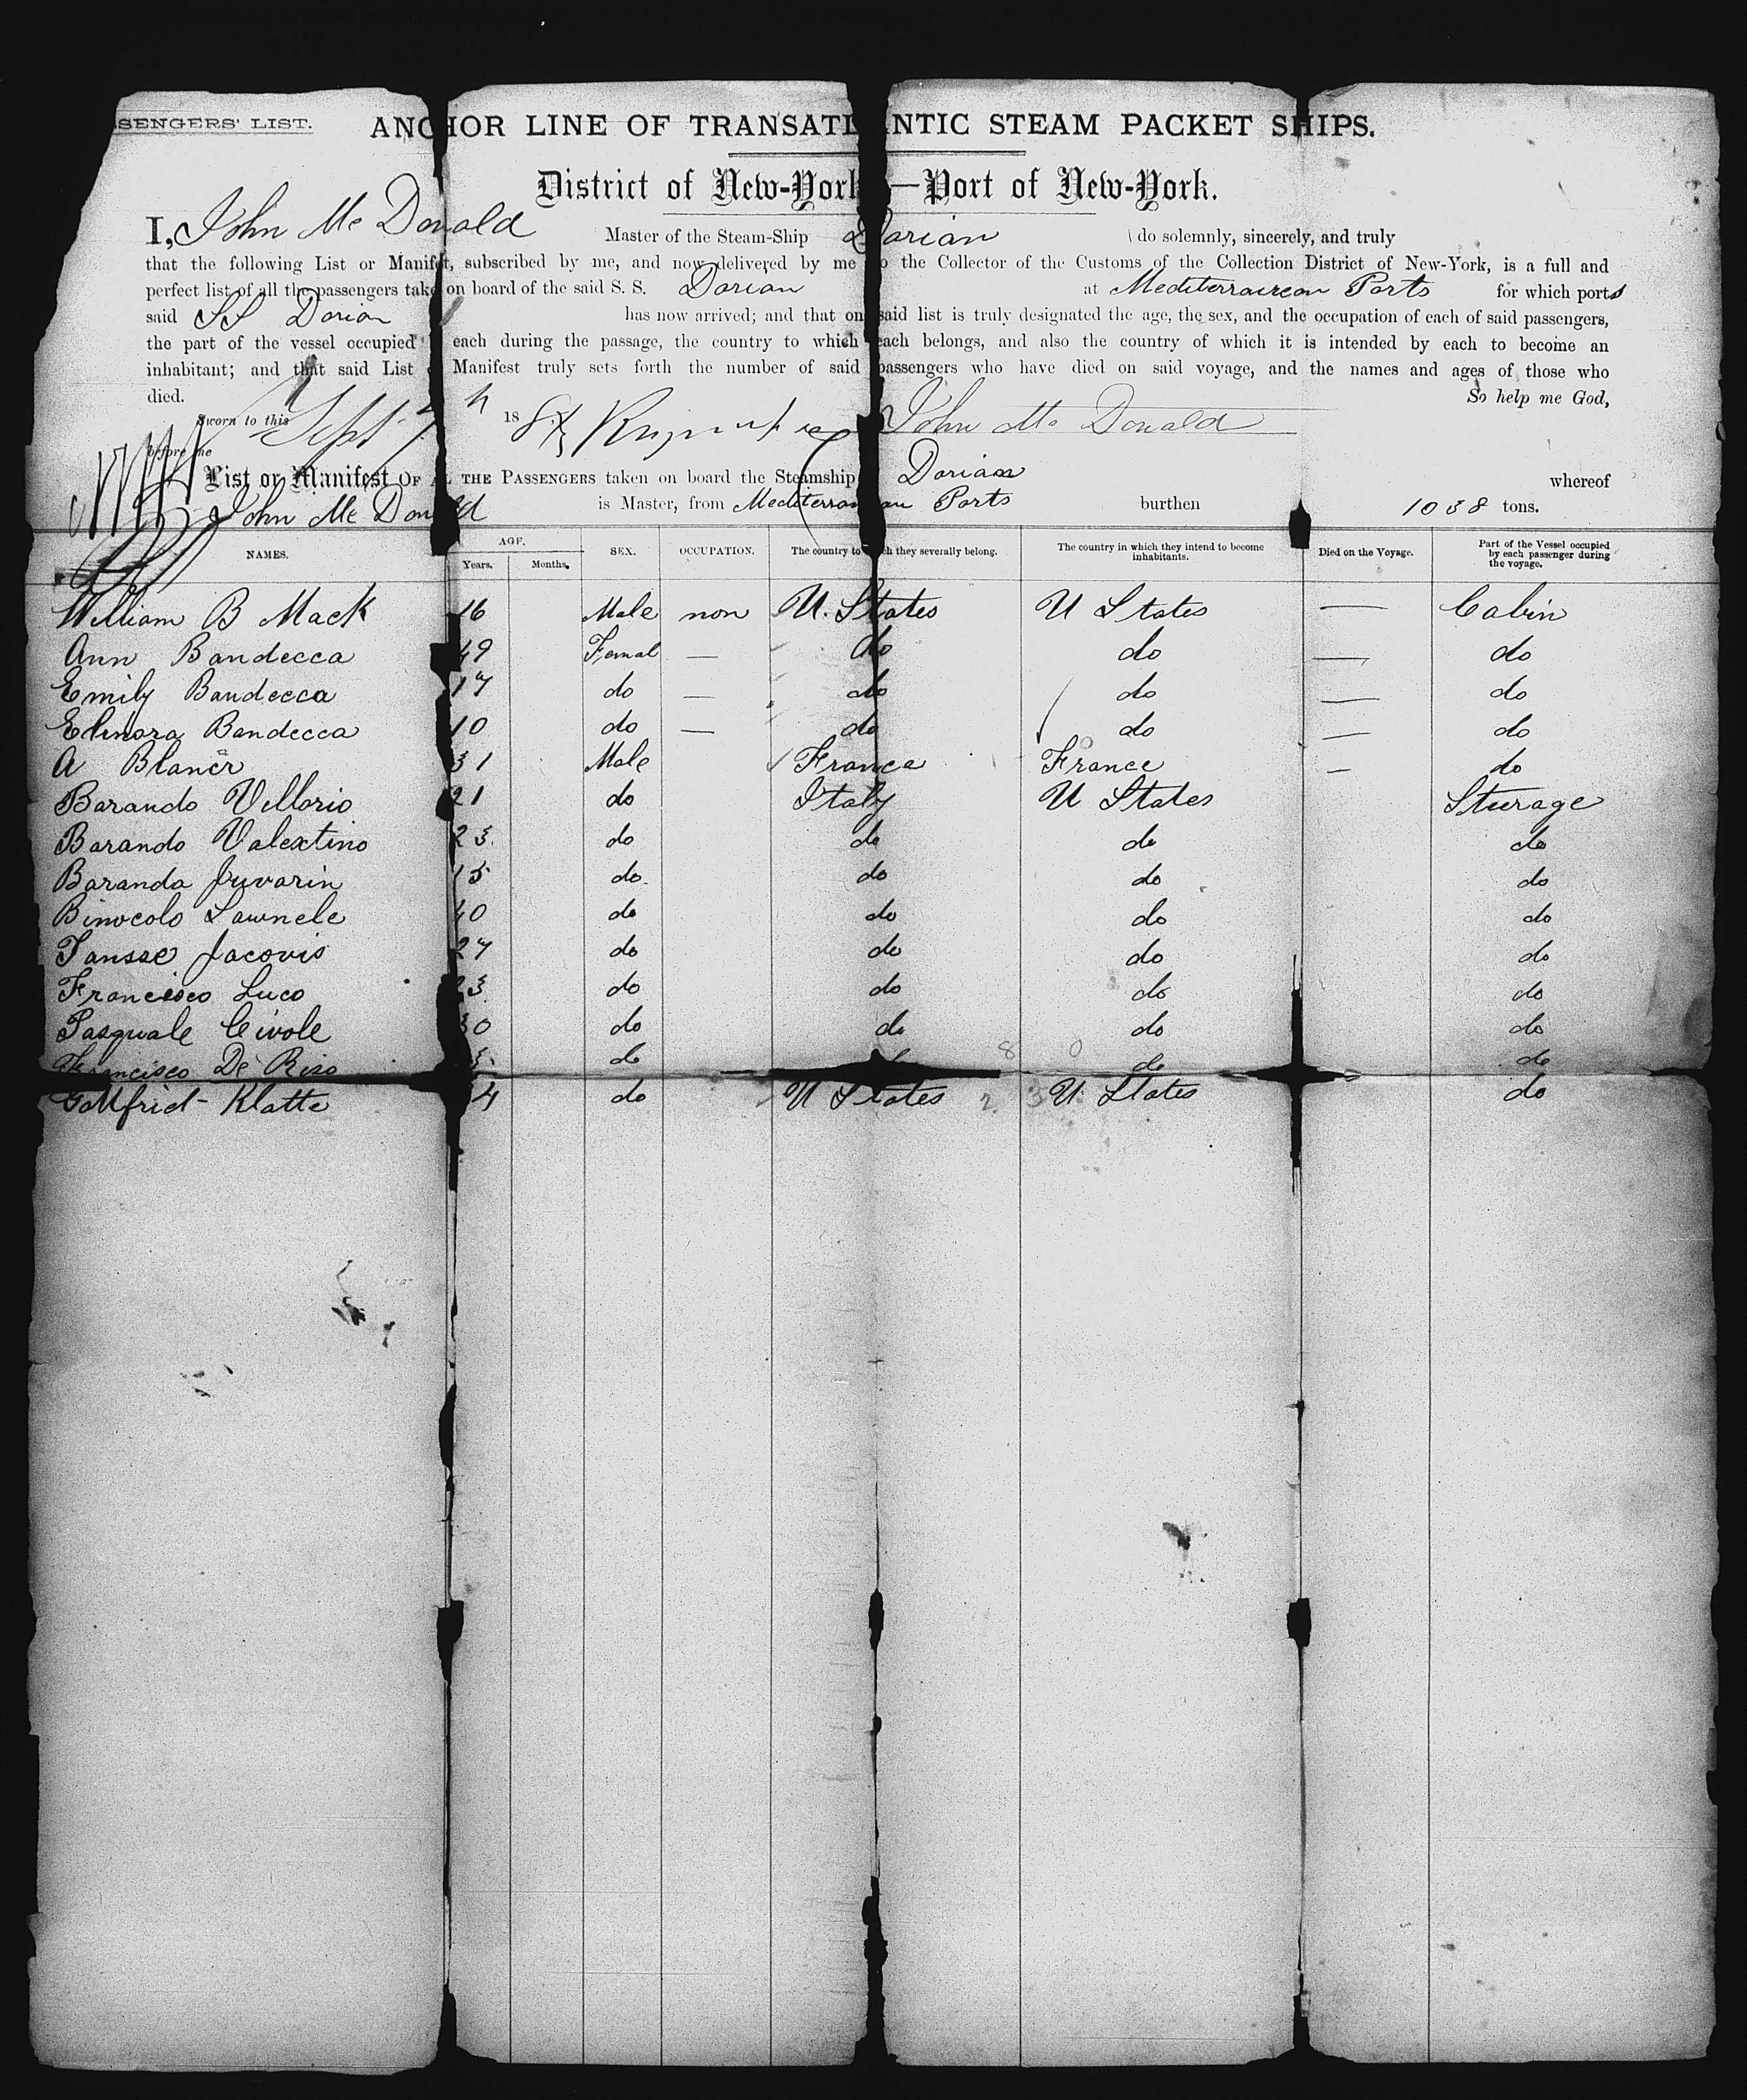 SENGERS' LIST.
ANCHOR LINE OF TRANSATLANTIC STEAM PACKET SHIPS.
District of New-York—Port of New-York.
I, John Mc Donald Master of the Steam-Ship Dorian do solemnly, sincerely, and truly
that the following List or Manifest, subscribed by me, and now delivered by me to the Collector of the Customs of the Collection District of New-York, is a full and
perfect list of all the passengers taken on board of the said S. S. Dorian at Mediterranean Ports for which ports
said SS Dorian has now arrived; and that on said list is truly designated the age, the sex, and the occupation of each of said passengers,
the part of the vessel occupied each during the passage, the country to which each belongs, and also the country of which it is intended by each to become an
inhabitant; and that said List Manifest truly sets forth the number of said passengers who have died on said voyage, and the names and ages of those who
died. So help me God,
Sworn to this Sept 18 John Mc Donald
before me
List or Manifest OF ALL THE PASSENGERS taken on board the Steamship Dorian whereof
John Mc Donald is Master, from Mediterranean Ports burthen 1038 tons.
NAMES. AGE. Years. Months. SEX. OCCUPATION. The country to which they severally belong. The country in which they intend to become inhabitants. Died on the Voyage. Part of the Vessel occupied by each passenger during the voyage.
William B Mack 16 Male non U. States U States — Cabin
Ann Bandecca 49 Femal — do do — do
Emily Bandecca 17 do — do do — do
Elinora Bandecca 10 do — do do — do
A Blancr 31 Male France France — do
Barando Villorio 21 do Italy U States Sturage
Barando Valextino 23 do do do do
Baranda Juvarin 15 do do do do
Binocolo Lawnele 40 do do do do
Tansse Jacovis 27 do do do do
Francisco Luco 23 do do do do
Pasquale Civole 30 do do do do
Francisco De Riso do do do
Gottfried Klatte 4 do U States U. States do